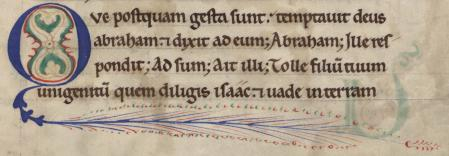 Que postquam gesta sunt. temptauit deus
abraham: ⁊ dixit ad eum; Abraham; Ille res
pondit; Ad sum; Ait illi; Tolle filiū tuum
unigenitū quem diligis isaác: ⁊ uade in terram